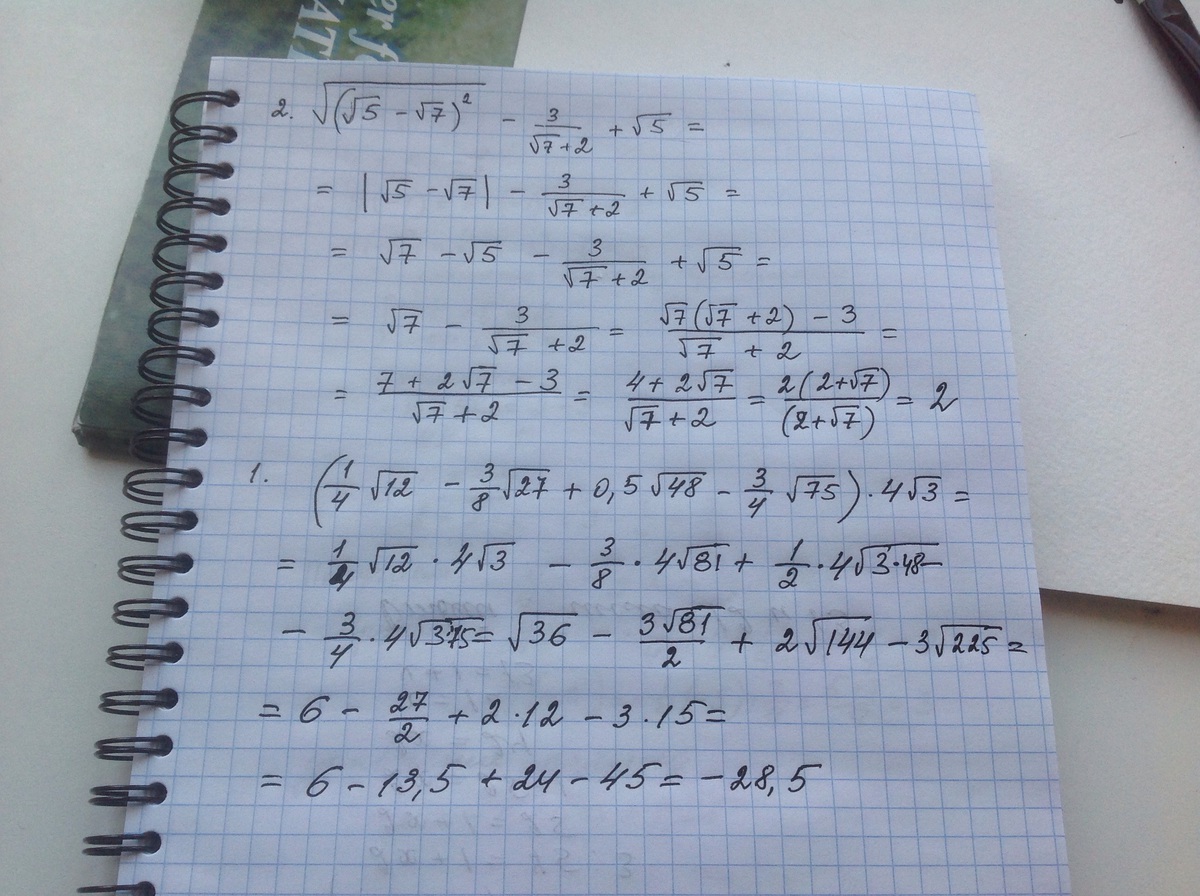 er f
ATI
2. √((√5 - √7)²) - 3/(√7+2) + √5 =
= |√5 - √7| - 3/(√7+2) + √5 =
= √7 - √5 - 3/(√7+2) + √5 =
= √7 - 3/(√7+2) = (√7(√7+2) - 3)/(√7+2) =
= (7+2√7-3)/(√7+2) = (4+2√7)/(√7+2) = 2(2+√7)/(2+√7) = 2
1. (1/4 √12 - 3/8 √27 + 0,5 √48 - 3/4 √75) · 4√3 =
= 1/4 √12 · 4√3 - 3/8 · 4√81 + 1/2 · 4√(3·48) -
- 3/4 · 4√(3·75) = √36 - 3√81/2 + 2√144 - 3√225 =
= 6 - 27/2 + 2·12 - 3·15 =
= 6 - 13,5 + 24 - 45 = -28,5